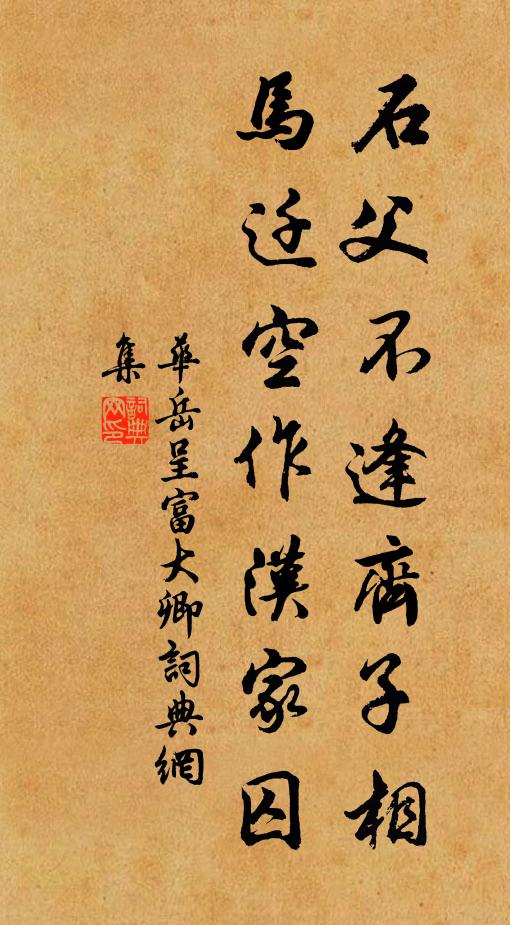 石父不逢齊子相
馬迁空作漢家囚
華岳呈富大卿詞典網
集
詞典網印